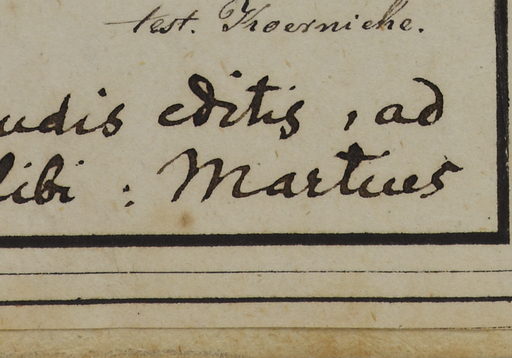 test. Koerniche.
udis editis, ad
libi: Martues